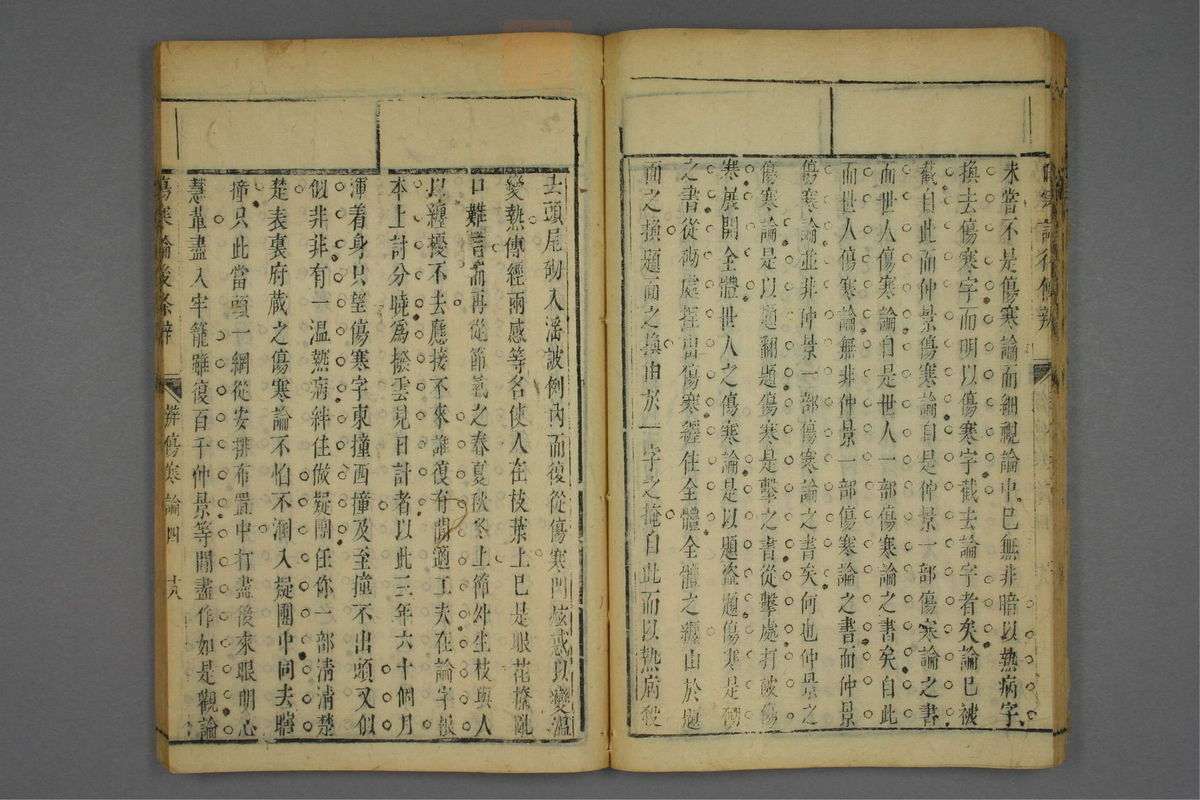 未嘗不是傷寒論而細視論中已無非暗以熱病字
換去傷寒字而明以傷寒字截去論字者矣論已被
截自此而仲景傷寒論自是仲景一部傷寒論之書
而世人傷寒論自是世人一部傷寒論之書矣自此
而世人傷寒論無非仲景一部傷寒論之書而仲景
傷寒論並非仲景一部傷寒論之書矣何也仲景之
傷寒論是以題翻題傷寒是擊之書從擊處打破傷
寒展開全體世人之傷寒論是以題盜題傷寒是砌
之書從砌處捏出傷寒纏住全體全體之纏由於題
面之換題面之換由於一字之掩自此而以熱病殺
去頭尾砌入滛詖例內而復從傷寒門惑以變溫
變熱傳經兩感等名使人在枝葉上已是眼花撩亂
口難言而再從節氣之春夏秋冬上節外生枝與人
以纏擾不去應接不來誰復有閒適工夫在論字報
本上計分曉爲撥雲見日計者以此三年六十個月
渾着身只望傷寒字東撞西撞及至撞不出頭又似
似非非有一溫熱病絆住做疑團任你一部清清楚
楚表裏府藏之傷寒論不怕不溷入疑團中同去瞎
撞只此當頭一網從安排布置中打盡後來眼明心
慧輩盡入牢籠雖復百千仲景等閒盡作如是觀論
傷寒論後條辨
辨傷寒論四